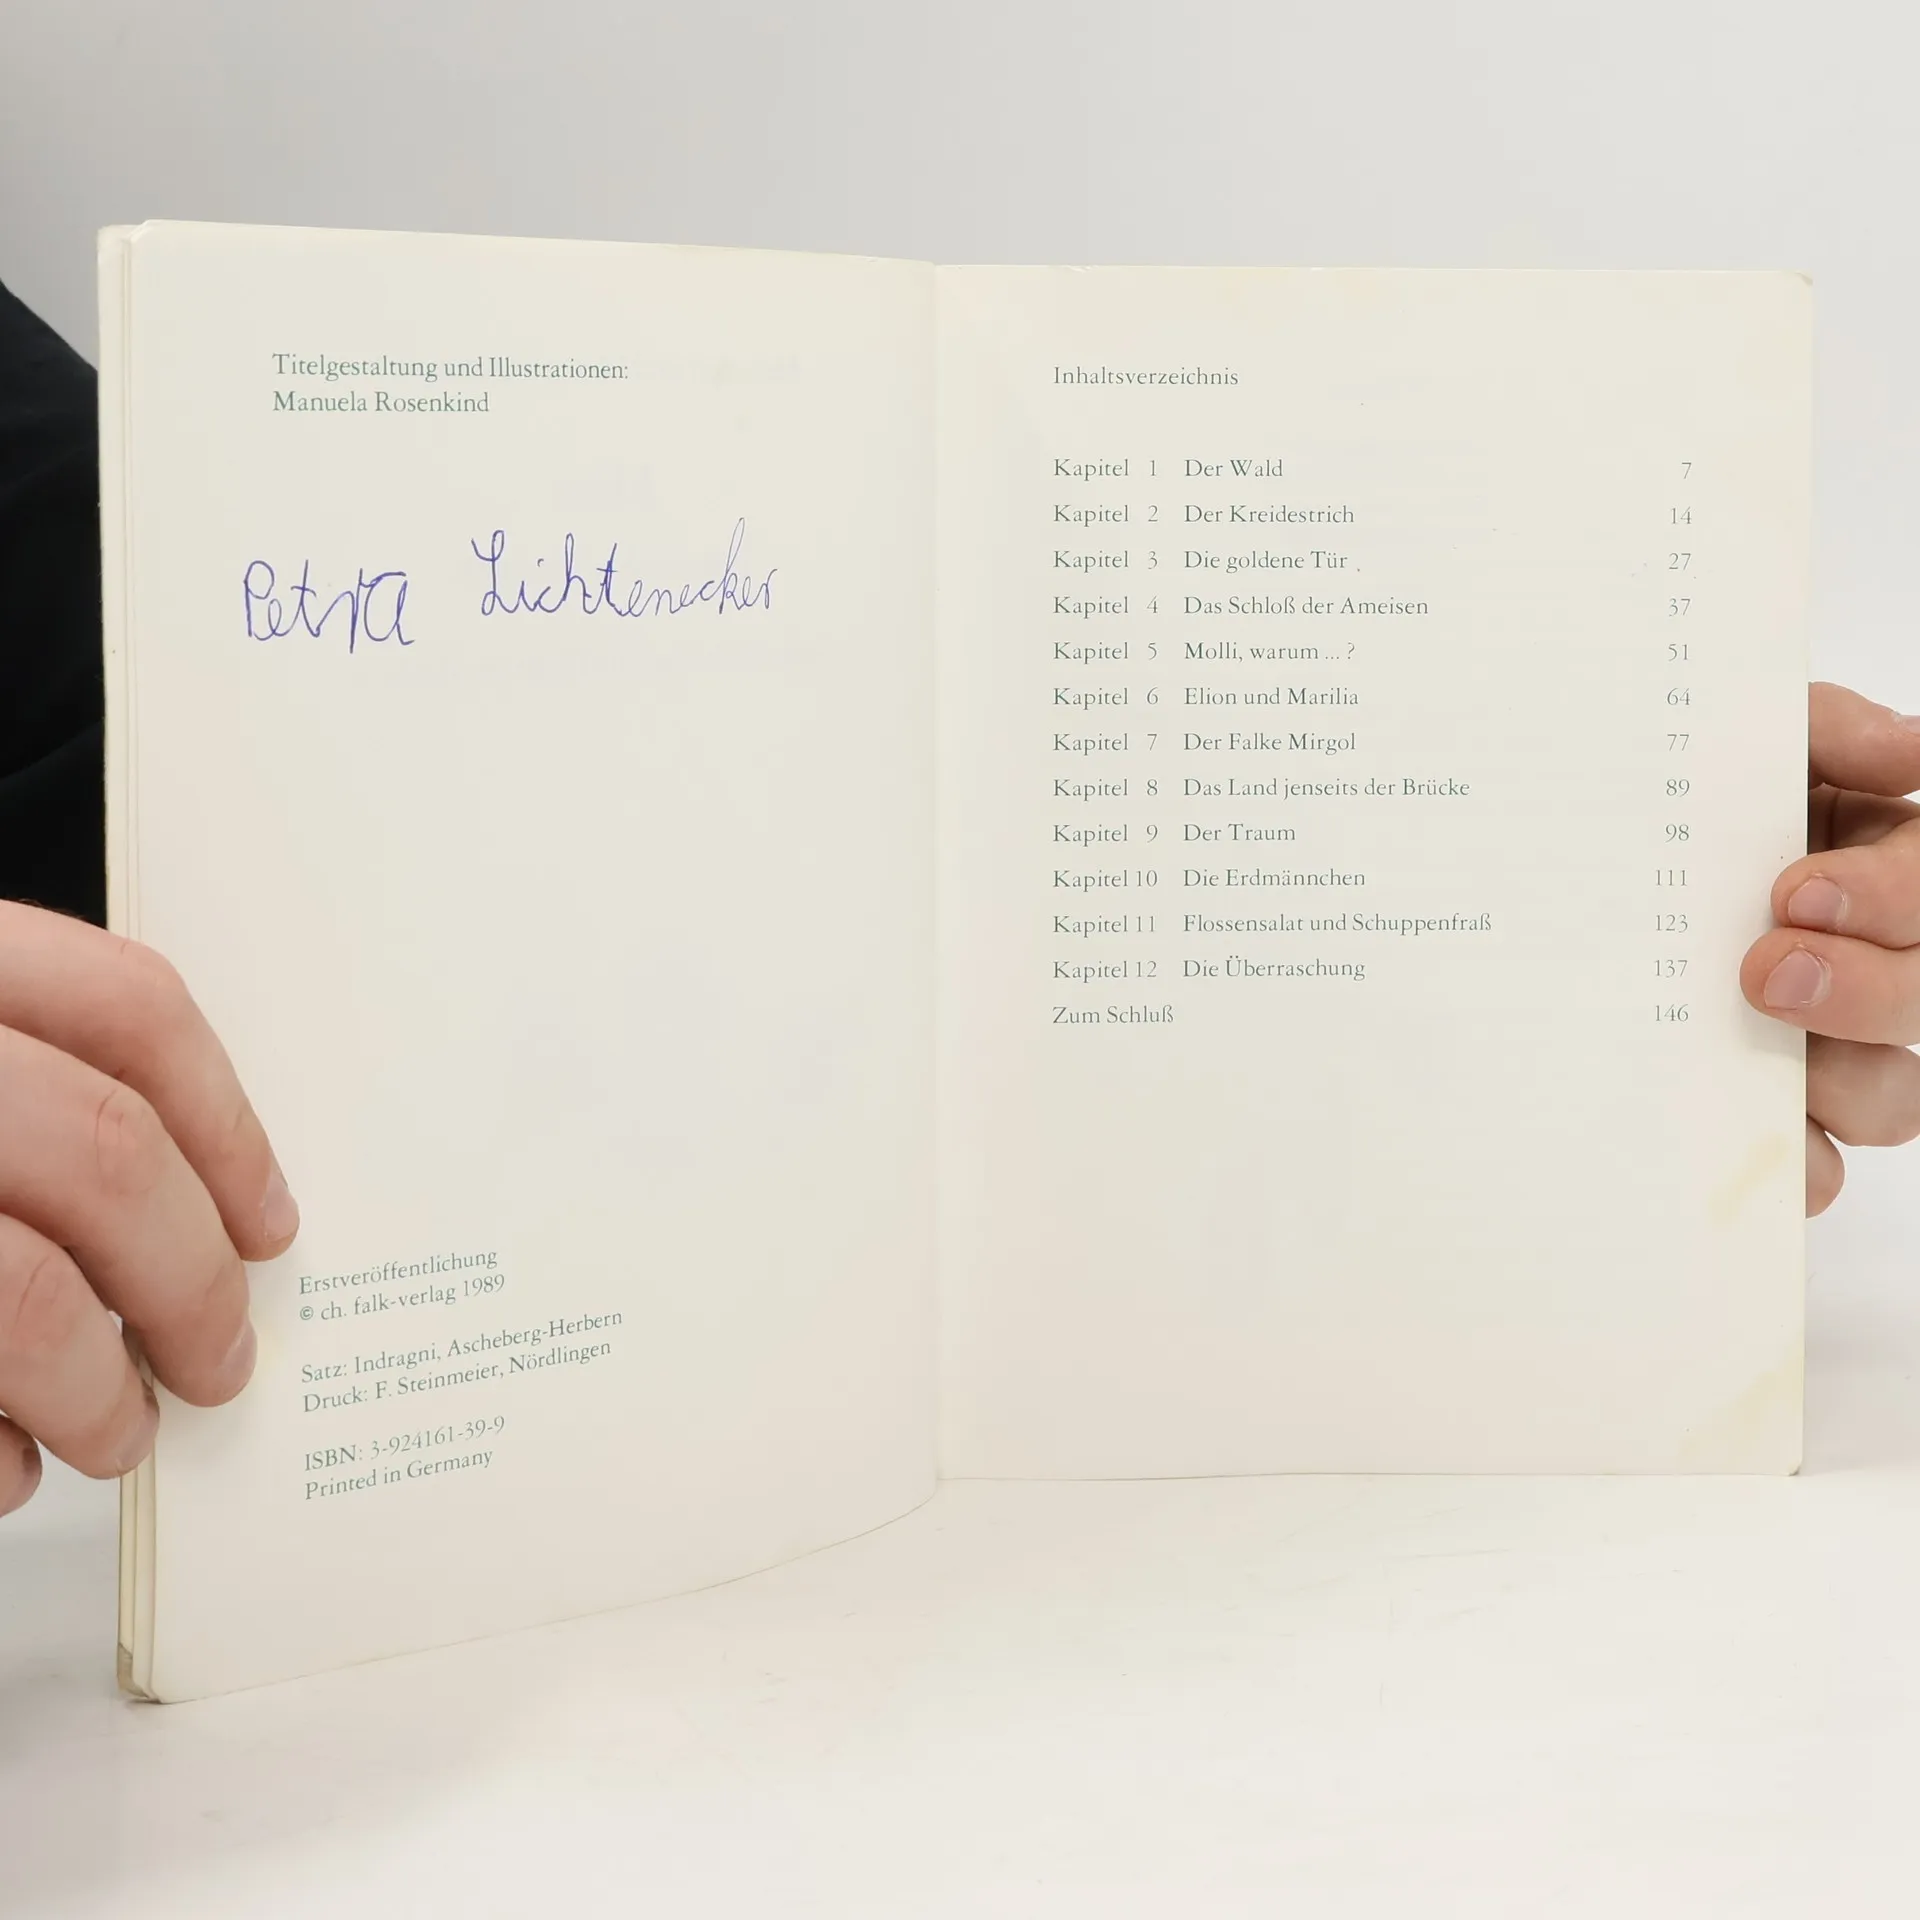 Titelgestaltung und Illustrationen:
Manuela Rosenkind
Petra Lichtenecker
Erstveröffentlichung
© ch. falk-verlag 1989
Satz: Indragni, Ascheberg-Herbern
Druck: F. Steinmeier, Nördlingen
ISBN: 3-924161-39-9
Printed in Germany
Inhaltsverzeichnis
Kapitel 1 Der Wald 7
Kapitel 2 Der Kreidestrich 14
Kapitel 3 Die goldene Tür 27
Kapitel 4 Das Schloß der Ameisen 37
Kapitel 5 Molli, warum ... ? 51
Kapitel 6 Elion und Marilia 64
Kapitel 7 Der Falke Mirgol 77
Kapitel 8 Das Land jenseits der Brücke 89
Kapitel 9 Der Traum 98
Kapitel 10 Die Erdmännchen 111
Kapitel 11 Flossensalat und Schuppenfraß 123
Kapitel 12 Die Überraschung 137
Zum Schluß 146